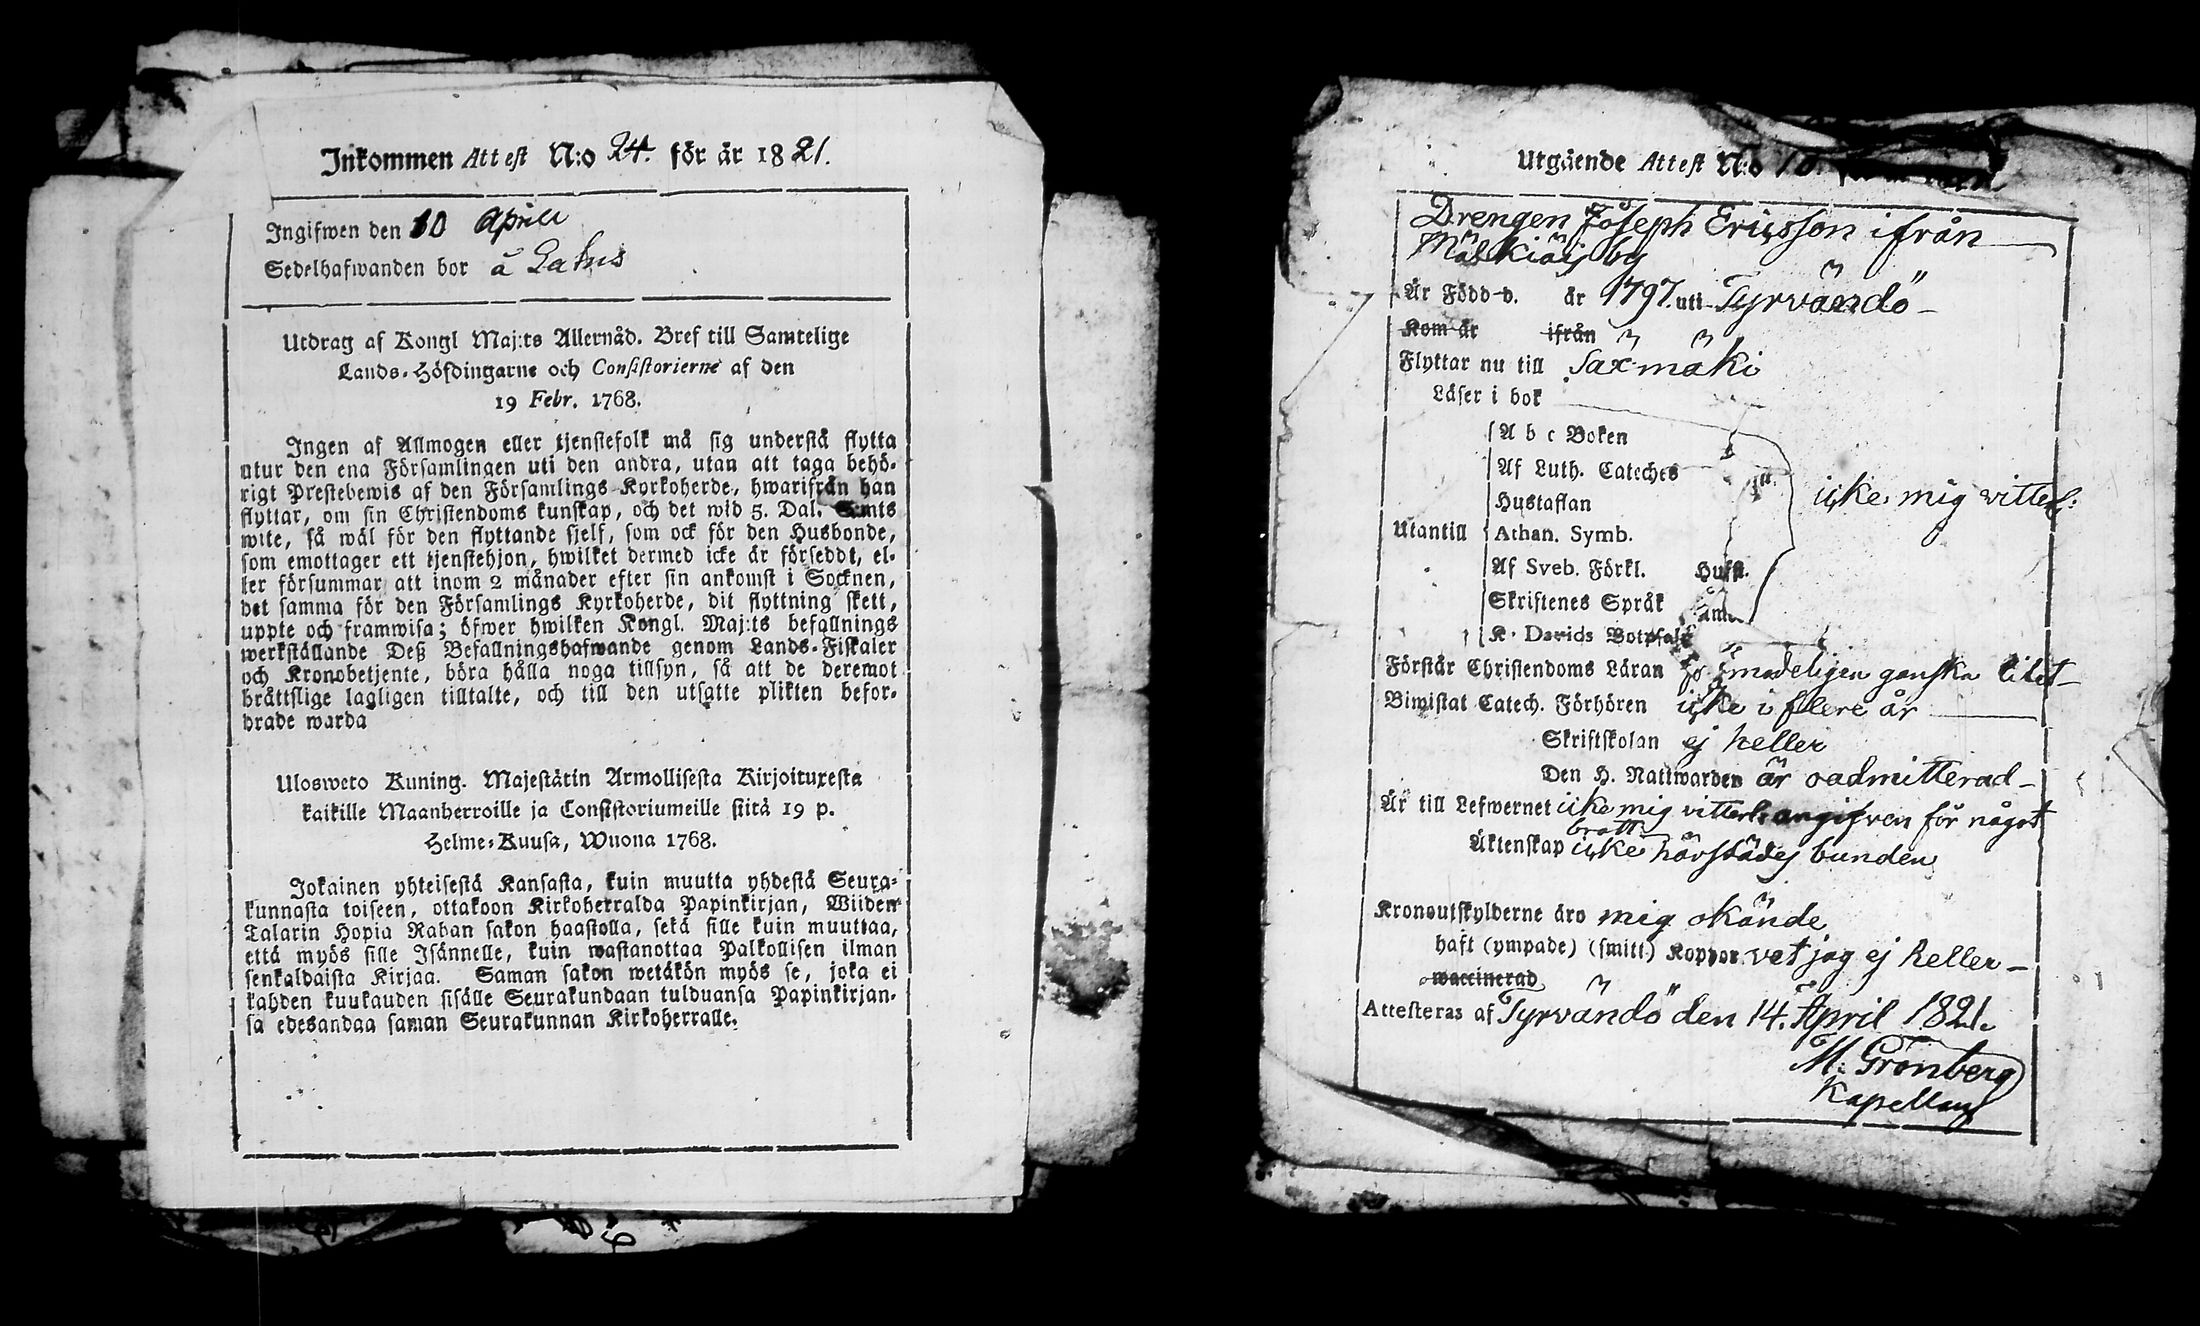 Inkommen Attest N:o 24. för år 1821.
Ingifwen den 10 Aprill
Sedelhafwanden bor å
Utdrag af Kongl Maj:ts Allernåd. Bref till Samtelige
Lands-Höfdingarne och Consistorierne af den
19 Febr. 1768.
Ingen af Allmogen eller tjenstefolk må sig understå flytta
utur den ena Församlingen uti den andra, utan att taga behö-
rigt Prestebewis af den Församlings Kyrkoherde, hwarifrån han
flyttar, om sin Christendoms kunskap, och det wid 5. Dal. Smts
wite, så wäl för den flyttande sjelf, som ock för den Husbonde,
som emottager ett tjenstehjon, hwilket dermed icke är försedt, el-
ler försummar att inom 2 månader efter sin ankomst i Socknen,
det samma för den Församlings Kyrkoherde, dit flyttning skett,
uppte och framwisa; öfwer hwilken Kongl. Maj:ts befallnings
werkställande Deß Befallningshafwande genom Lands-Fiskaler
och Kronobetjente, böra hålla noga tillsyn, så att de deremot
bråttslige lagligen tilltalte, och till den utsatte plikten befor-
drade warda
Ulosweto Kuning. Majestätin Armollisesta Kirjoituxesta
kaikille Maanherroille ja Consistoriumeille siitä 19 p.
Helme-Kuusa, Wuona 1768.
Jokainen yhteisestä Kansasta, kuin muutta yhdestä Seura-
kunnasta toiseen, ottakoon Kirkoherralda Papinkirjan, Wiiden
Talarin Hopia Rahan sakon haastolla, sekä sille kuin muuttaa,
että myös sille Isännelle, kuin wastanottaa Palkollisen ilman
senkaldaista Kirjaa. Saman sakon wetäkön myös se, joka ei
kahden kuukauden sisälle Seurakundaan tulduansa Papinkirjan-
sa edesandaa saman Seurakunnan Kirkoherralle.
Utgående Attest N:o 10.
Drengen Joseph Ericsson ifrån
by
År Född d. år 1797. uti Tyrvändö
Kom år ifrån
Flyttar nu till Saxmäki
Läser i bok
A b c Boken
Af Luth. Cateches
Hustaflan
Utantill Athan. Symb. icke mig vitterl:
Af Sveb. Förkl. Hust.
Skriftenes Språk
K. Davids Botpsal
Förstår Christendoms Läran förmodeligen ganska litet
Biwistat Catech. Förhören icke i flere år
Skriftskolan ej heller
Den H. Nattwarden är oadmitterad
Är till Lefwernet icke mig vitterl. angifven för något
brott
Äktenskap icke härstädes bunden
Kronoutskylderne äro mig okände
haft (ympade) (smitt) Koppor vet jag ej heller
waccinerad
Attesteras af Tyrvändö den 14. April 1821.
M: Grönberg
Kapellan